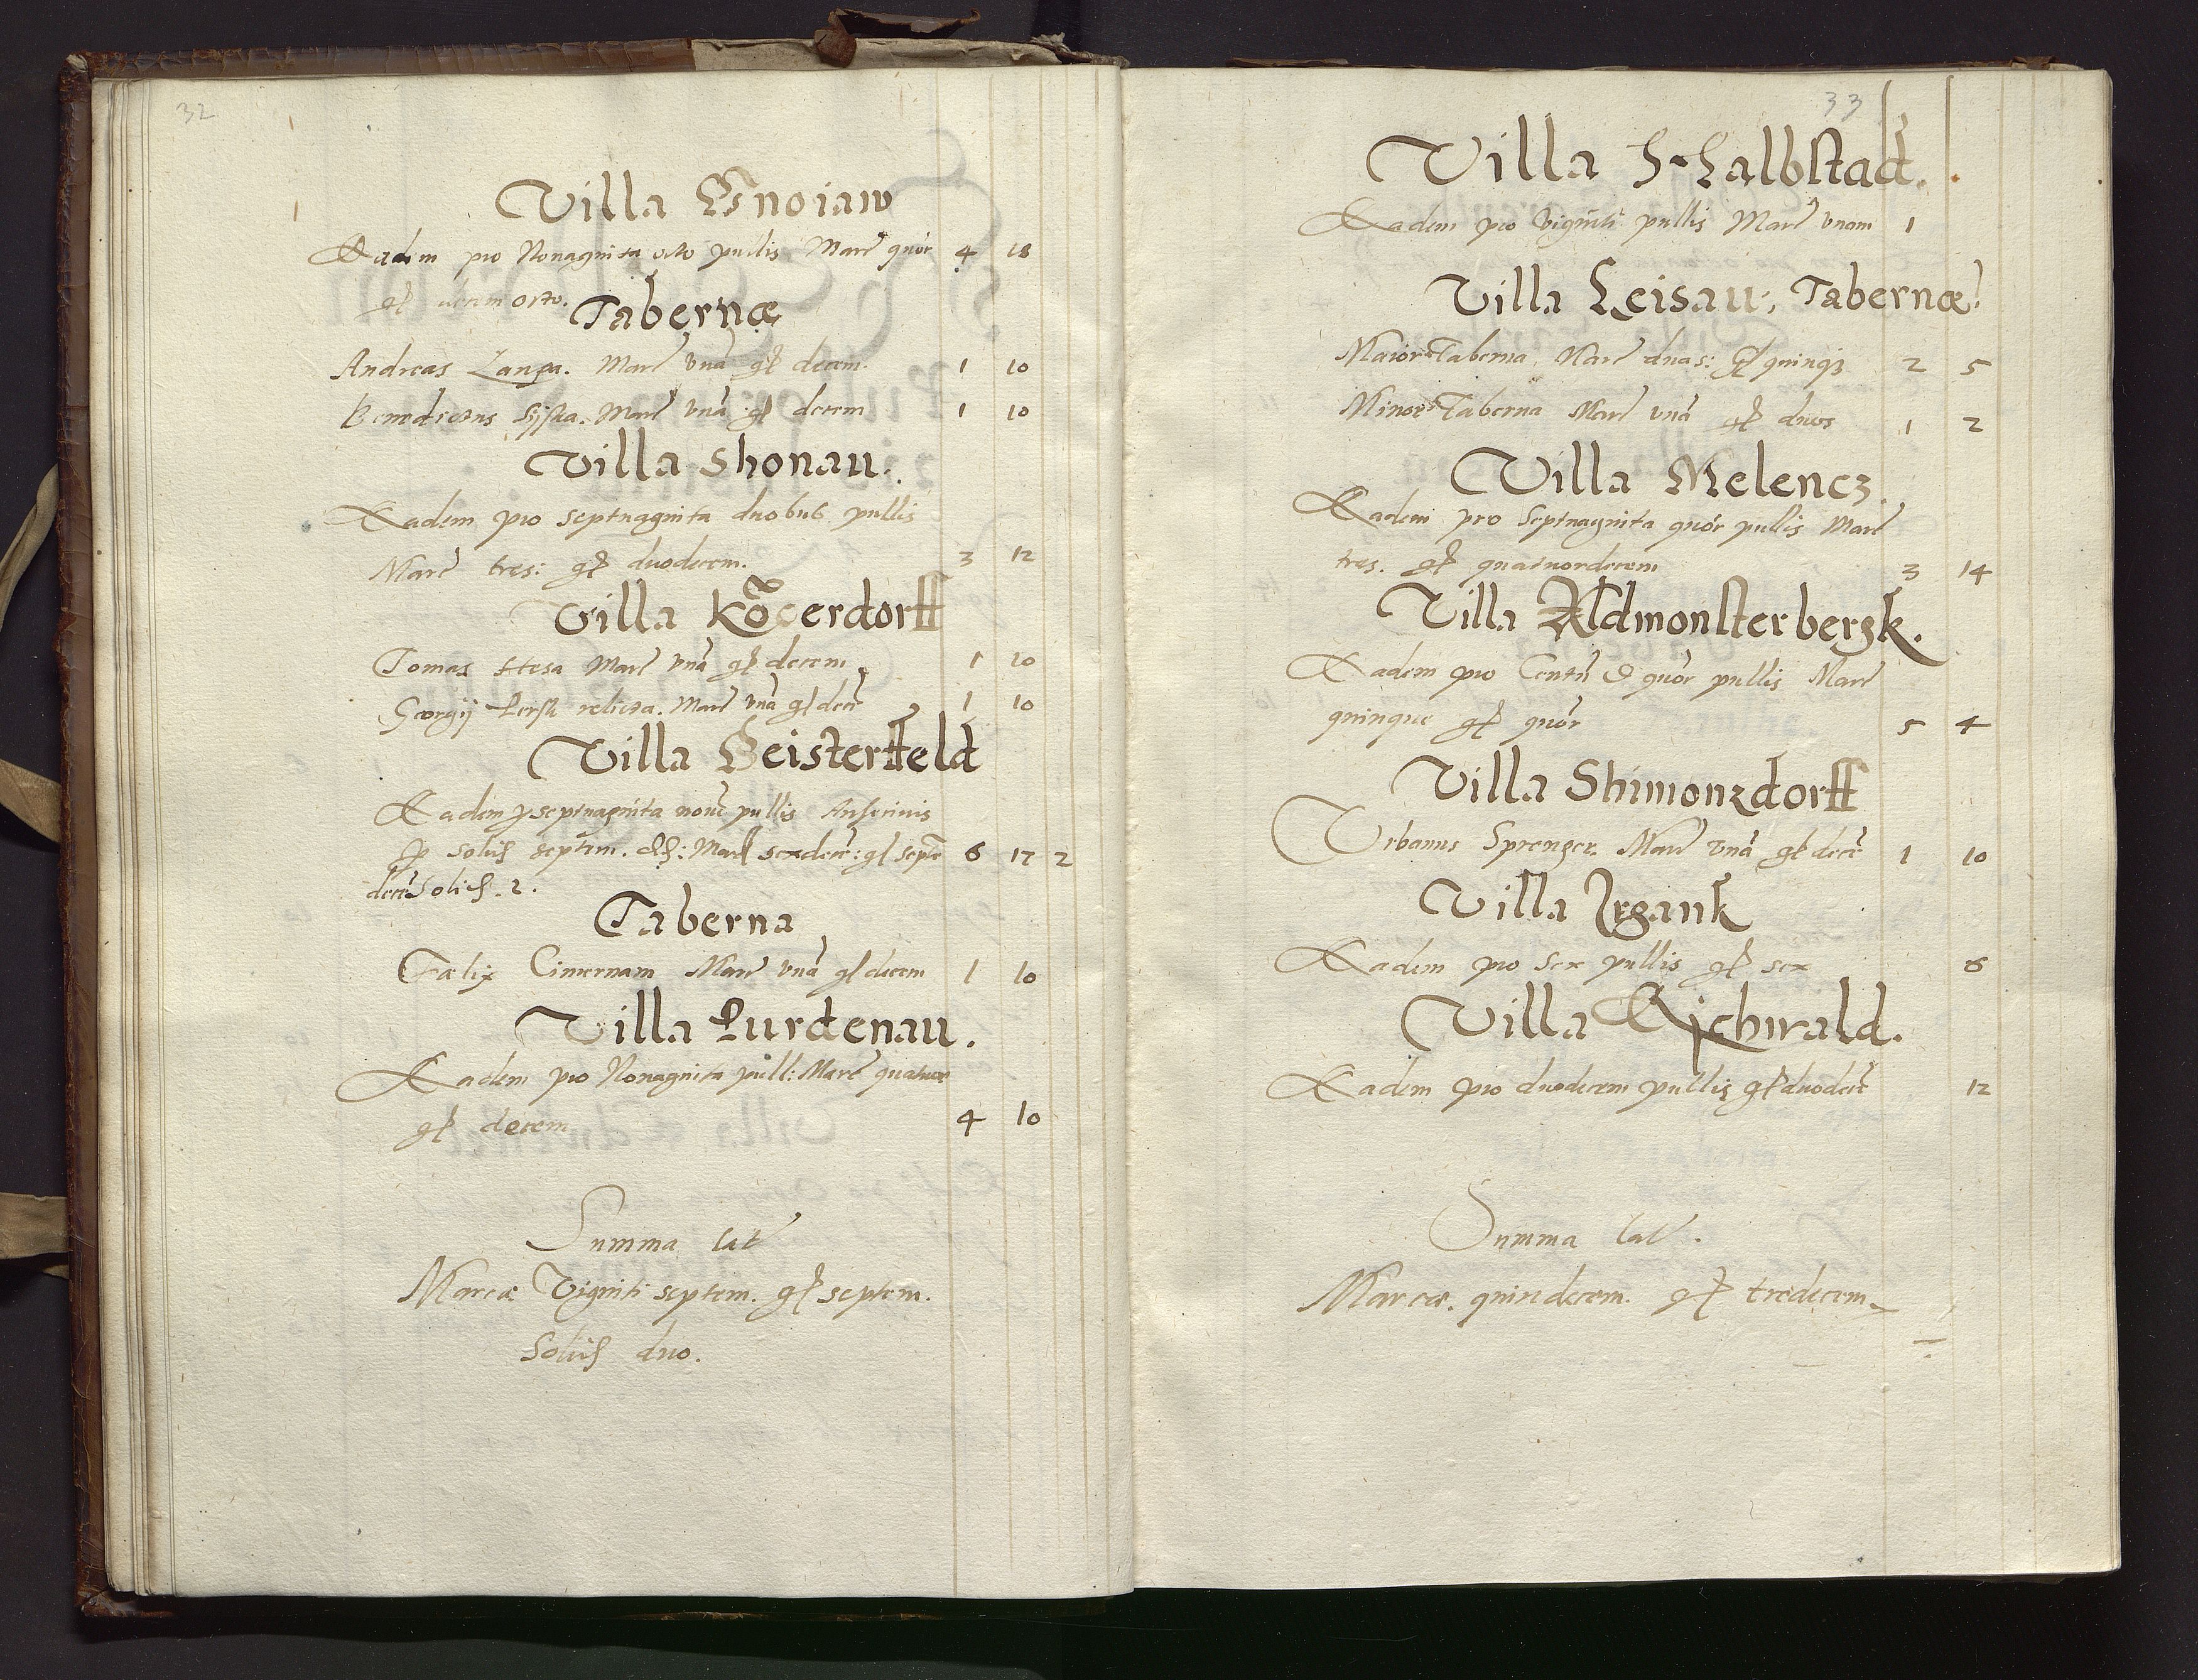 32
Villa Gnoiaw
Eadem pro Nonaginta octo pullis Marc quor 4 18
gl decem octo.
Tabernæ
Andreas Langa. Marc vnā gl decem. 1 10
Benedictus Marc vnā gl decem 1 10
Villa Shonau.
Eadem pro septuaginta duobus pullis
Marc tres: gl duodecem. 3 12
Villa
Tomas Hesa Marc vnā gl decem 1 10
Georgij relicta. Marc vnā gl decē 1 10
Villa Geisterffeld
Eadem p septuaginta novē pullis Anserinis
p solid septem. Marc sexdecē: gl septē 6 17 2
decē Solid. 2.
Taberna
Fælix Cimernam Marc vnā gl decem 1 10
Villa Lurdenau.
Eadem pro Nonaginta pull: Marc quatuor
gl decem 4 10
Summa lat
Marcæ Viginti septem. gl septem.
Solid duo.
33
Villa Halbstad.
Eadem pro viginti pullis Marc vnam 1
Villa Leisau, Tabernæ
Maior Taberna Marc duas: gl quinqȝ 2 5
Minor Taberna Marc vnā gl duos 1 2
Villa Melencz
Eadem pro Septuaginta quor pullis Marc
tres. gl quatuordecem 3 14
Villa Aldmonsterbergk.
Eadem pro Centū & quor pullis Marc
quinque gl quor 5 4
Villa Shimonzdorff
Vrbanus Sprenger. Marc vnā gl decē 1 10
Villa Irgank
Eadem pro sex pullis gl sex 6
Villa Ejchwald.
Eadem pro duodecem pullis gl duodecē 12
Summa lat.
Marcæ. quindecem. gl tredecem